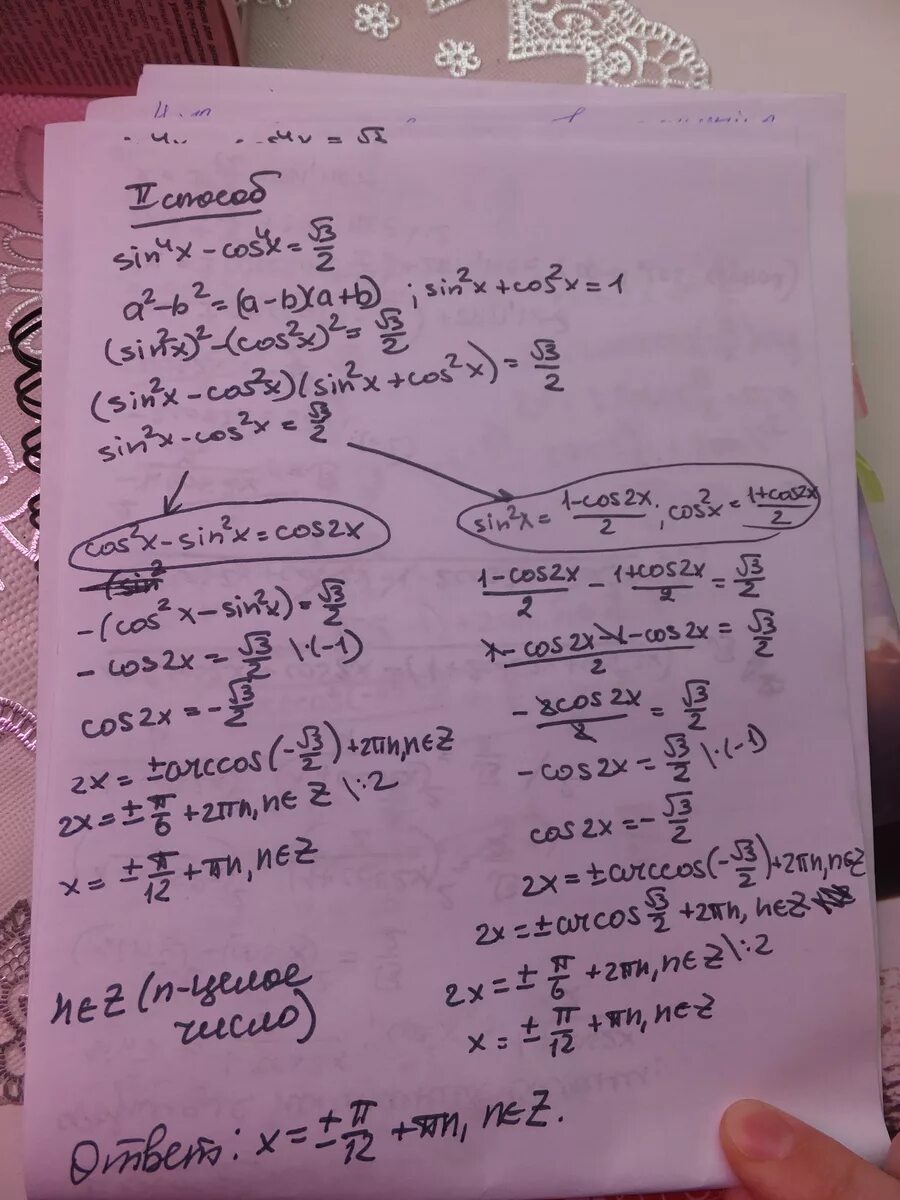 = √3
II способ
sin⁴x - cos⁴x = √3/2
a² - b² = (a-b)(a+b) ; sin²x + cos²x = 1
(sin²x)² - (cos²x)² = √3/2
(sin²x - cos²x)(sin²x + cos²x) = √3/2
sin²x - cos²x = √3/2
cos²x - sin²x = cos2x
(sin²
-(cos²x - sin²x) = √3/2
- cos2x = √3/2 \·(-1)
cos2x = -√3/2
2x = ±arccos(-√3/2) + 2πn, n∈Z
2x = ±π/6 + 2πn, n∈Z \:2
x = ±π/12 + πn, n∈Z
n∈Z (n-целое
число)
sin²x = (1-cos2x)/2 ; cos²x = (1+cos2x)/2
(1-cos2x)/2 - (1+cos2x)/2 = √3/2
(1-cos2x-1-cos2x)/2 = √3/2
-2cos2x/2 = √3/2
-cos2x = √3/2 \·(-1)
cos2x = -√3/2
2x = ±arccos(-√3/2) + 2πn, n∈Z
2x = ±arcos √3/2 + 2πn, n∈Z
2x = ±π/6 + 2πn, n∈Z \:2
x = ±π/12 + πn, n∈Z
Ответ: x = ±π/12 + πn, n∈Z.